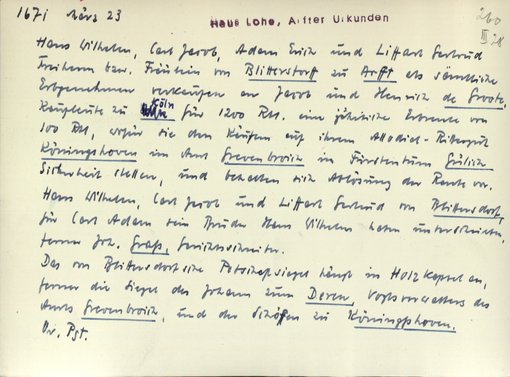 1671 März 23
Haus Lohe, Alfter Urkunden
260
III 28
Hans Wilhelm, Carl Jacob, Adam Erich und Liffart Gertrud
Freiherrn bzw. Fräulein von Blittersdorff zu Arfft als sämtliche
Erbgenehmen verkaufen an Jacob und Heinrich de Groote,
Kaufleute zu Köln für 1200 Rtl. eine jährliche Erbrente von
100 Rtl, wofür sie den Käufern auf ihrem Allodial-Rittergut
Köningshoven im Amt Grevenbroich im Fürstentum Gülich
Sicherheit stellen, und behalten sich Ablösung der Rente vor.
Hans Wilhelm, Carl Jacob und Liffart Gertrud von Blittersdorf,
für Carl Adam sein Bruder Hans Wilhelm haben unterschrieben,
ferner Joh. Grass, Gerichtsschreiber.
Das von Blittersdorfsche Petschaftsiegel hängt in Holzkapsel an,
ferner die Siegel des Johann zum Deren, Vogtsverwalters des
Amts Grevenbroich, und der Schöffen zu Köningßhoven.
Or. Pgt.